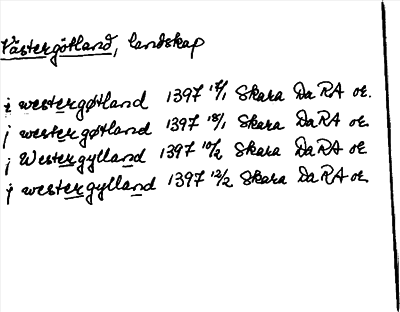 Västergötland, landskap
i westergøtland 1397 17/1 Skara DaRA or.
j westergøtland 1397 18/1 Skara DaRA or.
j Westergylland 1397 10/2 Skara DaRA or.
j westergylland 1397 12/2 Skara DaRA or.